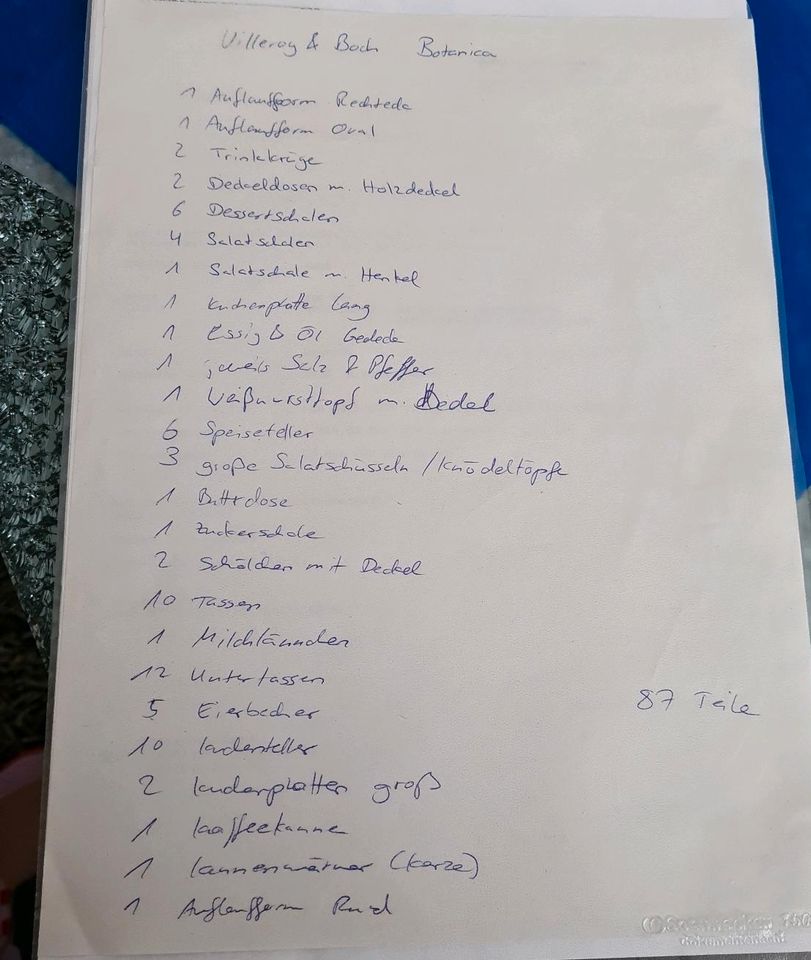 Villeroy & Boch Botanica
1 Auflaufform Rechteck
1 Auflaufform Oval
2 Trinkkrüge
2 Deckeldosen m. Holzdeckel
6 Dessertschalen
4 Salatschalen
1 Salatschale m. Henkel
1 Kuchenplatte lang
1 Essig & Öl Gedeck
1 jeweils Salz & Pfeffer
1 Weißwursttopf m. Deckel
6 Speiseteller
3 große Salatschüsseln / Knödeltöpfe
1 Butterdose
1 Zuckerschale
2 Schälchen mit Deckel
10 Tassen
1 Milchkännchen
12 Untertassen
87 Teile
5 Eierbecher
10 Kuchenteller
2 Kuchenplatten groß
1 Kaffeekanne
1 Kannenwärmer (Kerze)
1 Auflaufform Rund
dokumentenecht